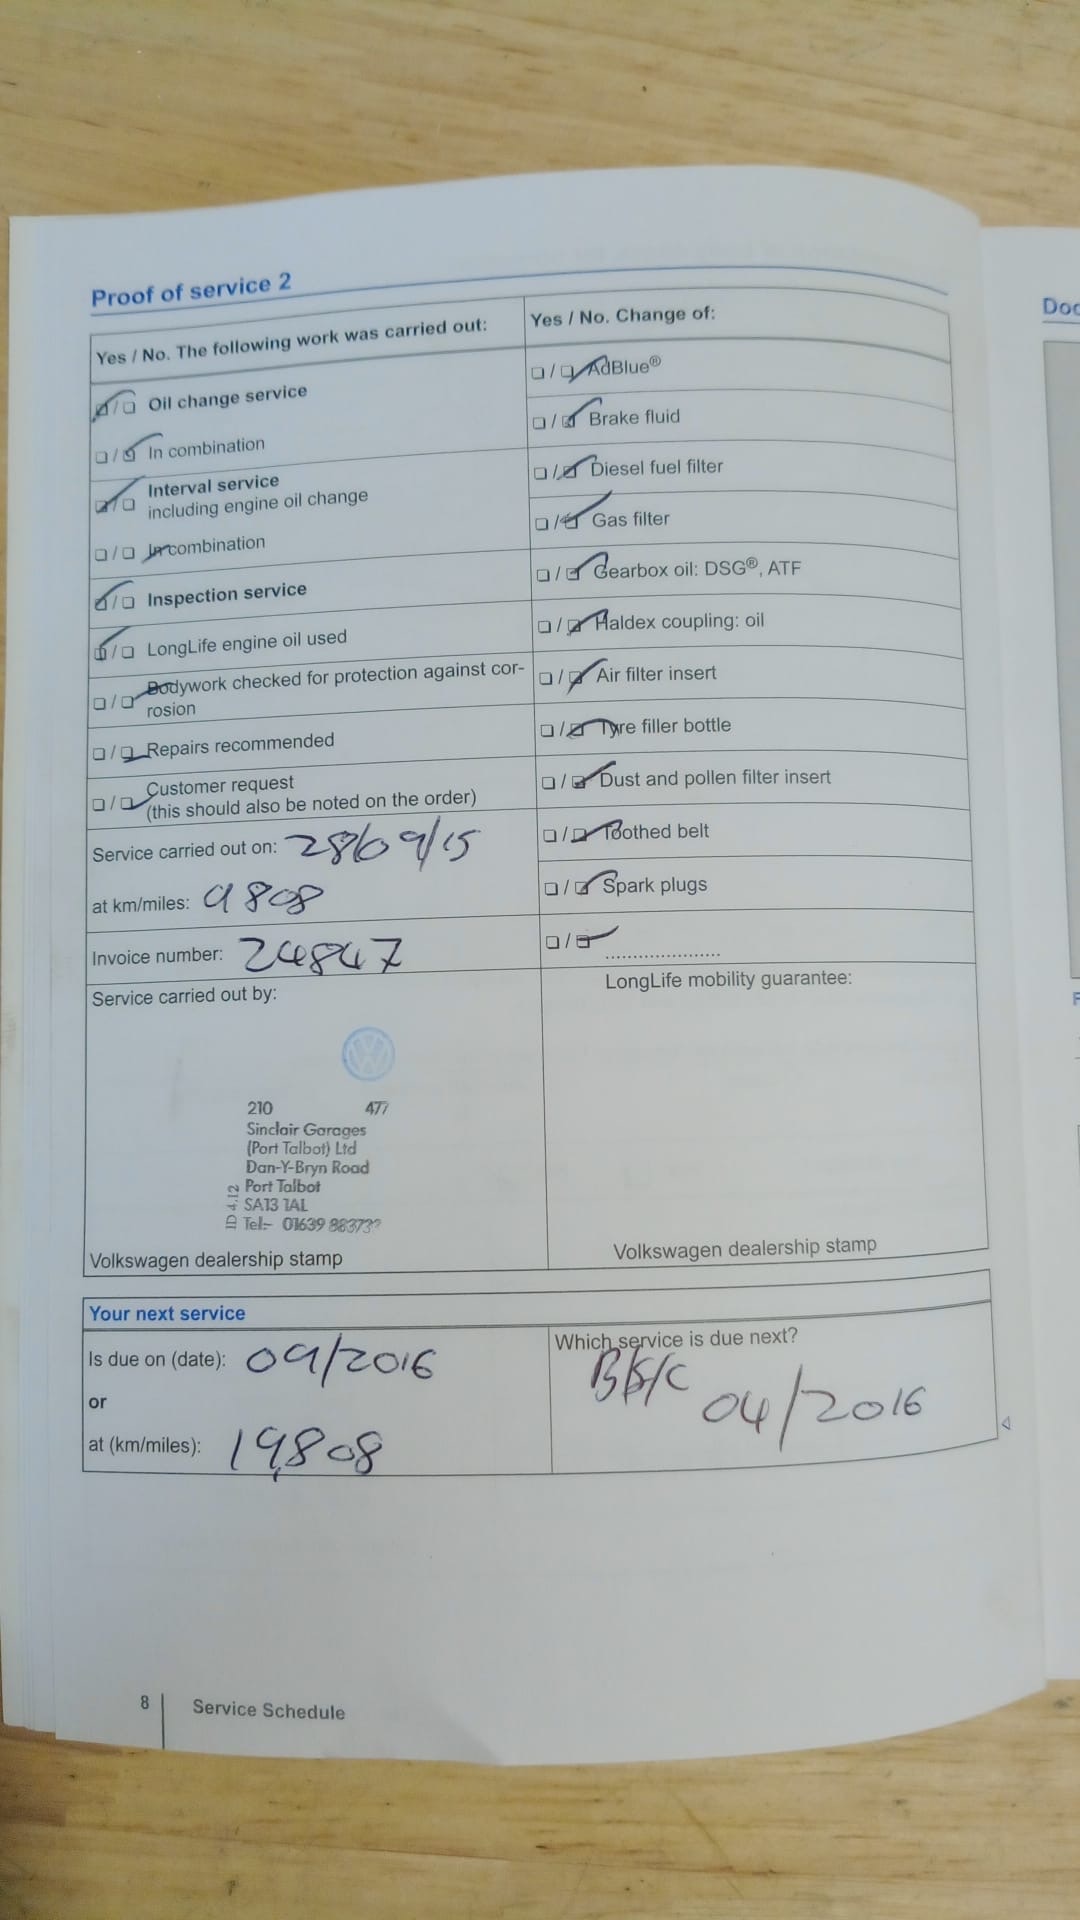 Proof of service 2
Yes / No. The following work was carried out:
Oil change service
In combination
Interval service
including engine oil change
In combination
Inspection service
LongLife engine oil used
Bodywork checked for protection against cor-
rosion
Repairs recommended
Customer request
(this should also be noted on the order)
Service carried out on: 28/09/15
at km/miles: 9808
Invoice number: 24847
Service carried out by:
210 477
Sinclair Garages
(Port Talbot) Ltd
Dan-Y-Bryn Road
Port Talbot
SA13 1AL
Tel:-  01639
ID 4.12
Volkswagen dealership stamp
Yes / No. Change of:
AdBlue®
Brake fluid
Diesel fuel filter
Gas filter
Gearbox oil: DSG®, ATF
Haldex coupling: oil
Air filter insert
Tyre filler bottle
Dust and pollen filter insert
Toothed belt
Spark plugs
LongLife mobility guarantee:
Volkswagen dealership stamp
Your next service
Is due on (date): 09/2016
or
at (km/miles): 19,808
Which service is due next?
04/2016
8 Service Schedule